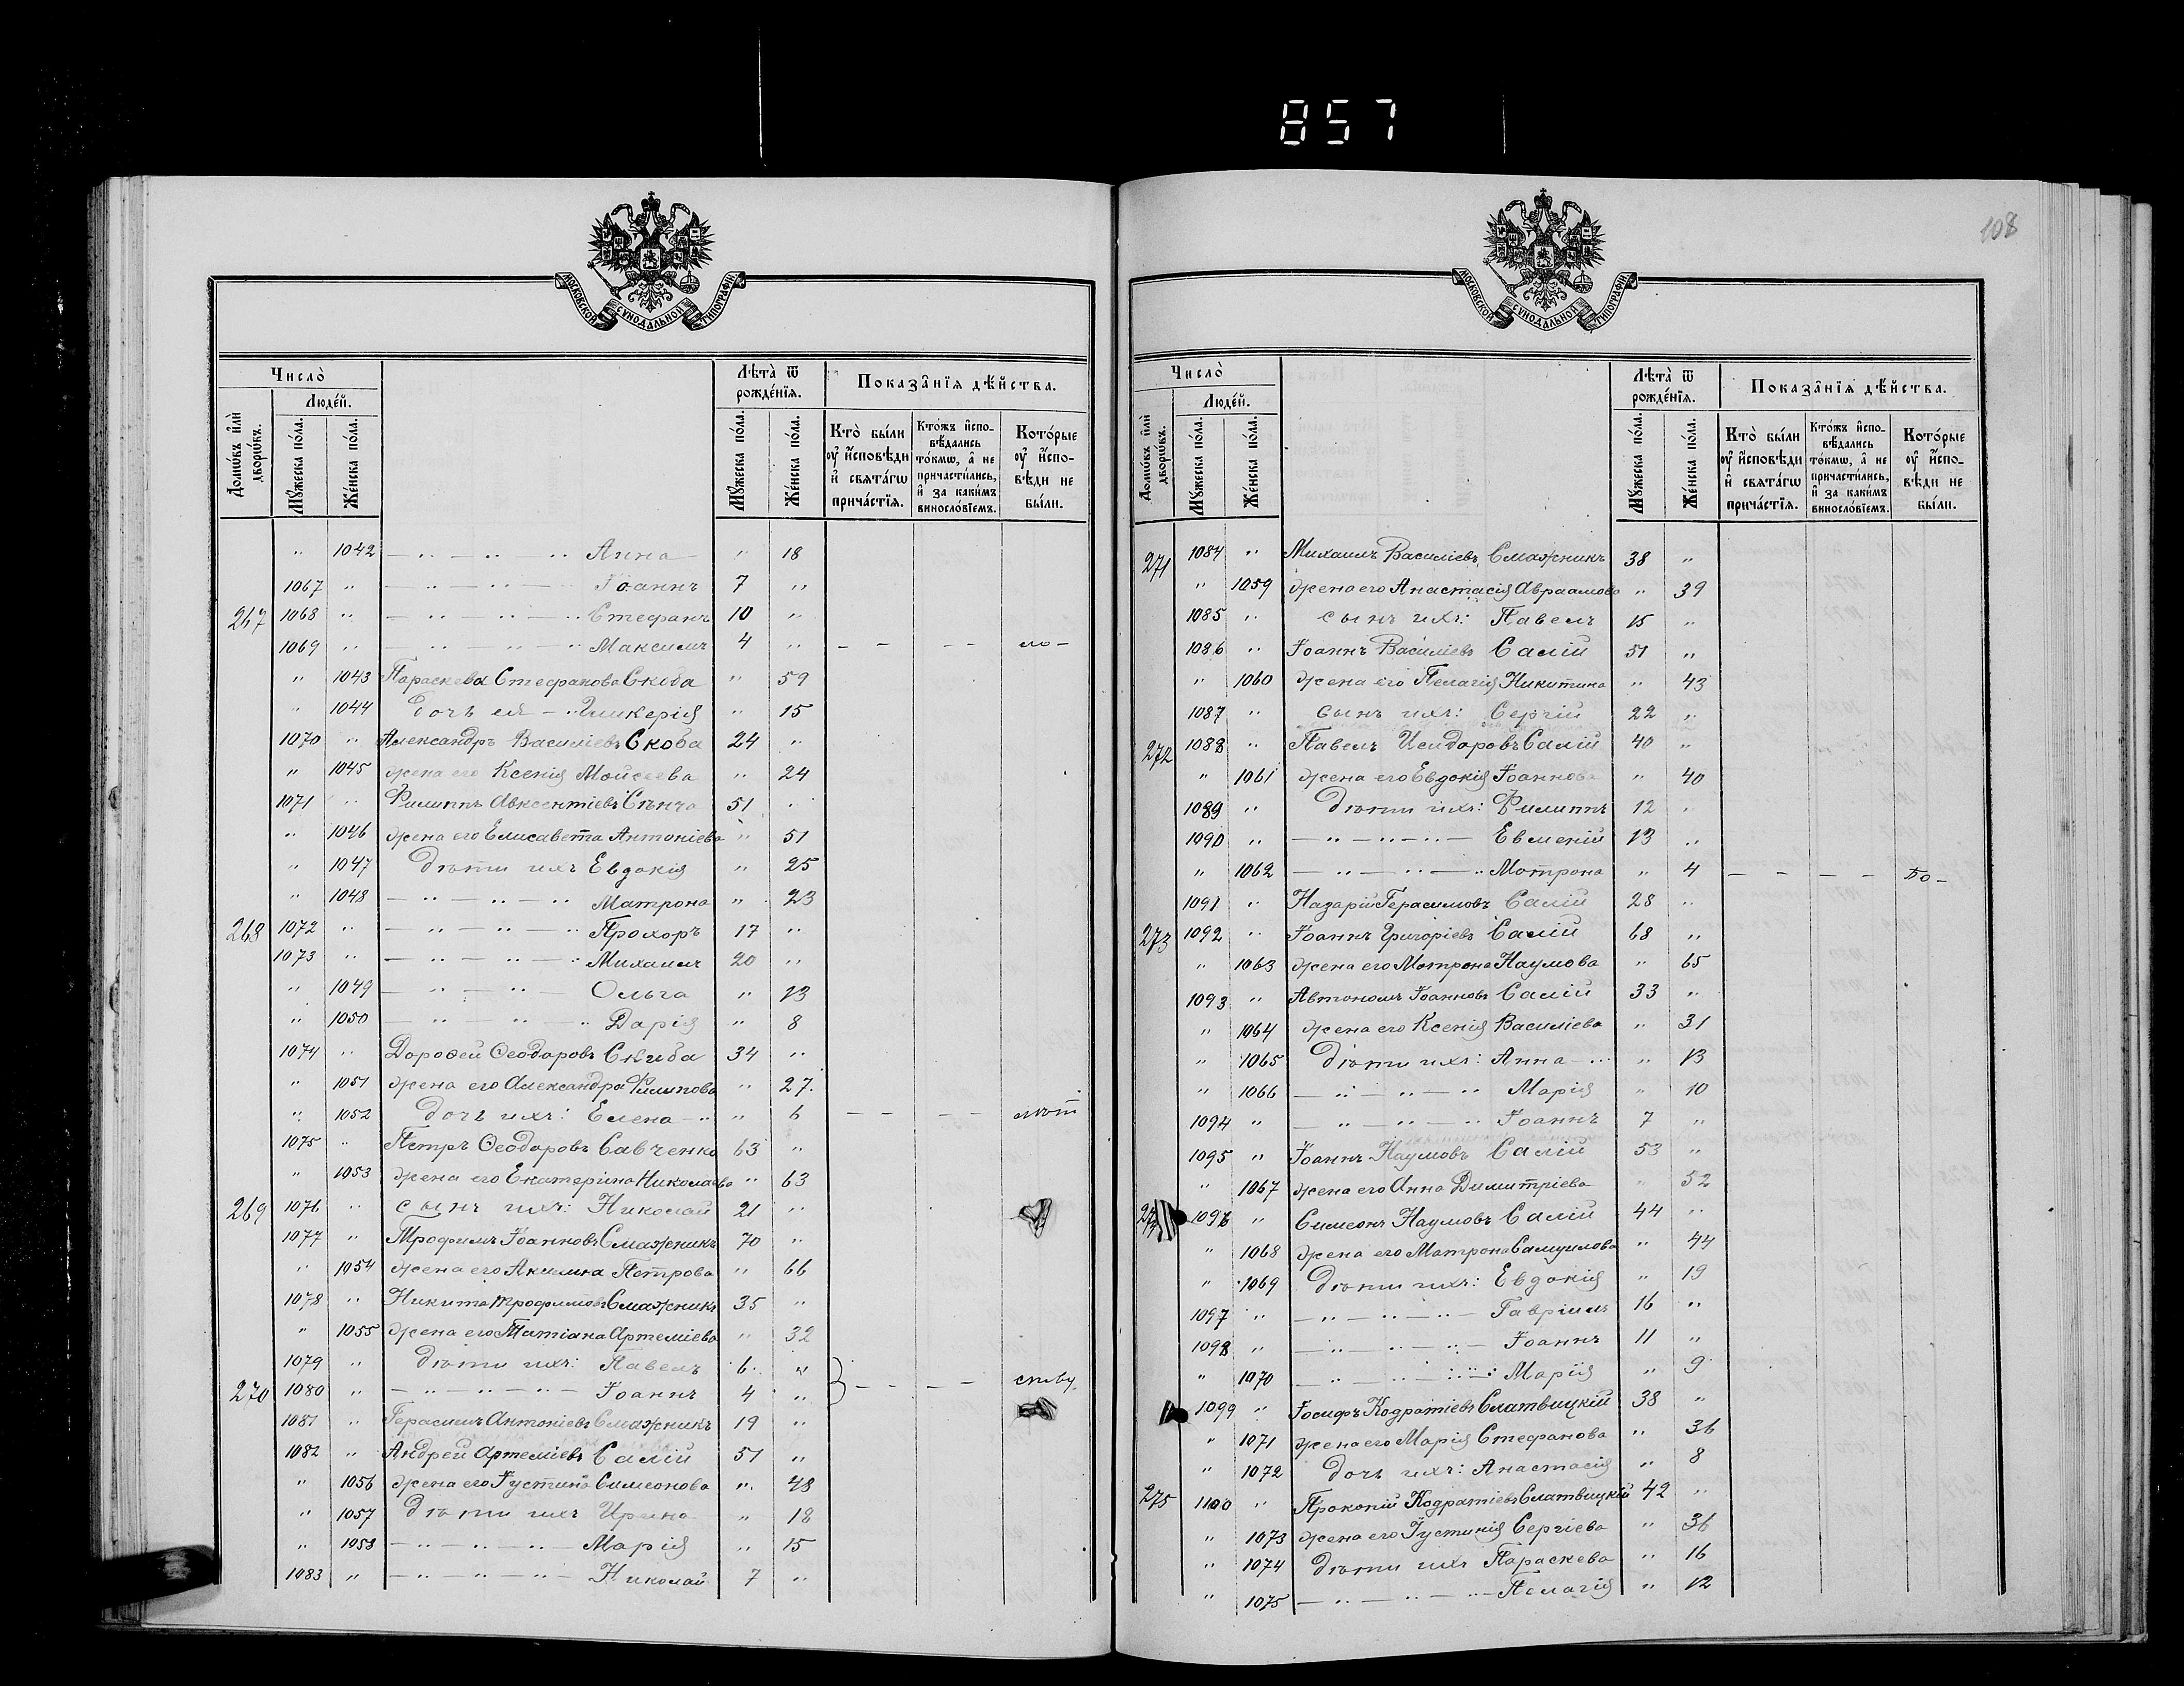 857
108
МОСКОВСКОЙ СѴНОДАЛЬНОЙ ТИПОГРАФІИ.
Число̀
Людей.
Домѡвъ и҆лѝ дворѡвъ.
Мꙋжеска по́ла.
Же́нска по́ла.
Лѣта̀ ѿ рожде́нїѧ.
Мꙋжеска по́ла.
Же́нска по́ла.
Показа̂нїѧ дѣ́йства.
Кто̀ бы́ли ᲂу҆ и҆сповѣди и҆ свѧта́гѡ прича́стїѧ.
Кто́жъ и҆спо-вѣ́дались то́кмѡ, а҆ не причасти́лись, и҆ за каки́мъ винословїемъ.
Кото́рые ᲂу҆ и҆спо-вѣди не бы́ли.
" 1042 — " — " — " Анна — " 18
1067 " — " — " — Іоаннъ 7 "
267 1068 " — " — " — " Стефанъ 10 "
1069 " — " — " — " Максимъ 4 " — — — — ло —
" 1043 Параскева Стефанова Скоба " 59
" 1044 дочь ея — " Гликерія " 15
1070 " Александръ Василіевъ Скоба 24 "
" 1045 жена его Ксенія Мойсеева " 24
1071 " Филиппъ Авксентіевъ 51 "
" 1046 жена его Елисавета Антоніева " 51
" 1047 дѣти ихъ Евдокія " 25
" 1048 — " — " — " Матрона " 23
268 1072 " — " — " — " Прохоръ 17 "
1073 " — " — " — " Михаилъ 20 "
" 1049 — " — " — Ольга " 13
" 1050 — " — " — " Дарія " 8
1074 " Дороѳей Ѳеодоровъ Скиба 34 "
" 1051 жена его Александра Филипова " 27
" 1052 дочь ихъ: Елена — " " 6 — — — — лѣт
1075 " Петръ Ѳеодоровъ Савченко 63 "
" 1053 жена его Екатерина Николаева " 63
269 1076 " сынъ ихъ: Николай 21 "
1077 " Трофимъ Іоанновъ Смажникъ 70 "
" 1054 жена его Акилина Петрова " 66
1078 " Никита Трофимовъ Смажникъ 35 "
" 1055 жена его Татіана Артеміева " 32
1079 " дѣти ихъ: Павелъ 6 "
270 1080 " — " — " — " — Іоаннъ 4 " } — — — — ству
1081 " Герасимъ Антоніевъ Смажникъ 19 "
1082 " Андрей Артеміевъ Салій 51 "
" 1056 жена его Іустина Симеонова " 48
" 1057 дѣти ихъ Ирина " 18
" 1058 — " — " — " — Марія " 15
1083 " — " — " — " — Николай 7 "
Число̀
Людей.
Домѡвъ и҆лѝ дворѡвъ.
Мꙋжеска по́ла.
Же́нска по́ла.
Лѣта̀ ѿ рожде́нїѧ.
Мꙋжеска по́ла.
Же́нска по́ла.
Показа̂нїѧ дѣ́йства.
Кто̀ бы́ли ᲂу҆ и҆сповѣди и҆ свѧта́гѡ прича́стїѧ.
Кто́жъ и҆спо-вѣ́дались то́кмѡ, а҆ не причасти́лись, и҆ за каки́мъ винословїемъ.
Кото́рые ᲂу҆ и҆спо-вѣди не бы́ли.
МОСКОВСКОЙ СѴНОДАЛЬНОЙ ТИПОГРАФІИ.
271 1084 " Михаилъ Василіевъ Смажникъ 38 "
" 1059 жена его Анастасія Авраамова " 39
1085 " сынъ ихъ: Павелъ 15 "
1086 " Іоаннъ Василіевъ Салій 51 "
" 1060 жена его Пелагія Никитина " 43
1087 " сынъ ихъ: Сергій 22 "
272 1088 " Павелъ Исидоровъ Салій 40 "
" 1061 жена его Евдокія Іоаннова " 40
1089 " дѣти ихъ: Филиппъ 12 "
1090 " — " — " — " — Евменій 13 "
" 1062 — " — " — " Мотрона " 4 — — — — Бо —
1091 " Назарій Герасимовъ Салій 28 "
273 1092 " Іоаннъ Григоріевъ Салій 68 "
" 1063 жена его Мотрона Наумова " 65
1093 " Автономъ Іоанновъ Салій 33 "
" 1064 жена его Ксенія Василіева " 31
" 1065 дѣти ихъ: Анна — " " 13
" 1066 — " — " — " Марія " 10
1094 " — " — " — " Іоаннъ 7 "
1095 " Іоаннъ Наумовъ Салій 53 "
" 1067 жена его Анна Димитріева " 52
274 1096 " Симеонъ Наумовъ Салій 44 "
" 1068 жена его Матрона Самуилова " 44
" 1069 дѣти ихъ: Евдокія " 19
1097 " — " — " — " — Гавріилъ 16 "
1098 " — " — " — " — Іоаннъ 11 "
" 1070 — " — " — " Марія " 9
1099 " Іосифъ Кодратіевъ Слатвицкій 38 "
" 1071 жена его Марія Стефанова " 36
" 1072 дочь ихъ: Анастасія " 8
275 1100 " Прокопій Кодратіевъ Слатвицкій 42 "
" 1073 жена его Іустинія Сергіева " 36
" 1074 дѣти ихъ Параскева " 16
" 1075 — " — " — " — Пелагія " 12